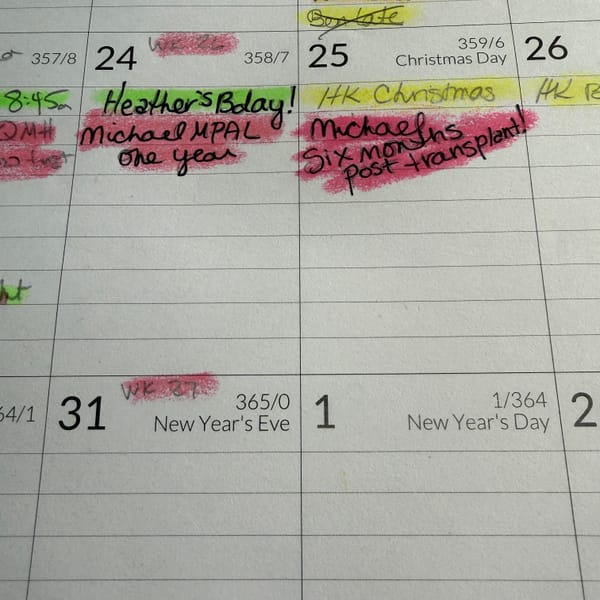 Ben late
357/8
24
WK 26
358/7
25
359/6
Christmas Day
26
8:45a
Heather's Bday!
HK Christmas
HK
QMH
Michael MPAL
one year
Michael
Six months
post transplant!
31
WK 27
365/0
New Year's Eve
1
1/364
New Year's Day
2
64/1